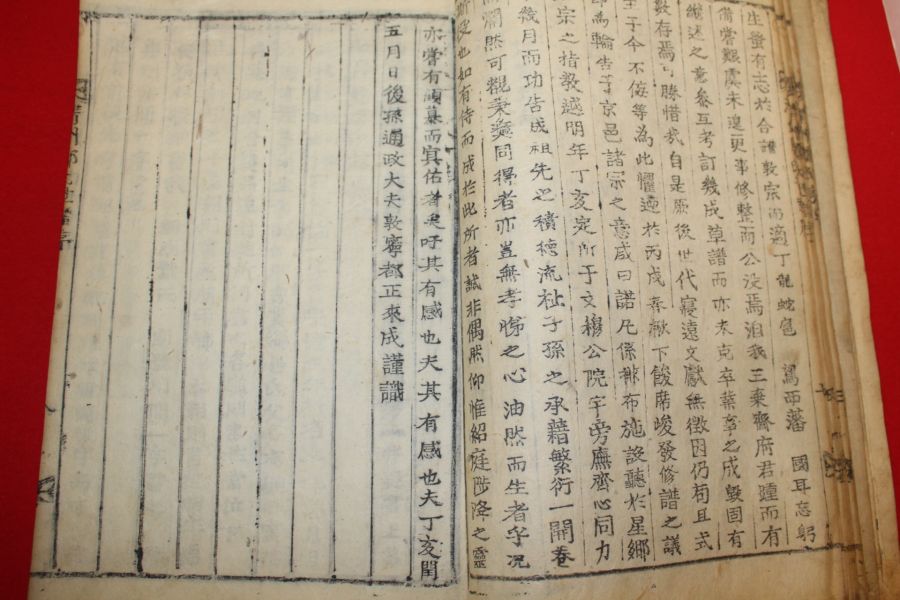 生蚩有志於合譜敦宗而適丁龍蛇危 爲而藩 國耳忘躬
備嘗艱虞未遑更事修整而公沒焉洎我三棄齋府君踵而有
繼述之意參互考訂幾成草譜而亦未克卒業事之成毁固有
數存焉可勝惜哉自是厥後世代寖遠文獻無徵因仍苟且式
至于今不侫等爲此懼迺於丙戌奉歡下餕席峻發修譜之議
爲輪告于京邑諸宗之意咸曰諾凡係排布施設聽於星鄕
宗之指敎越明年丁亥定所于文穆公院宇旁廡齊心同力
幾月而功告成祖先之積德流祉子孫之承藉繁衍一開卷
瞭然可觀秉彛同得者亦豈無孝悌之心油然而生者乎況
是也如有待而成於此所者誠非偶然仰惟紹庭陟降之靈
亦嘗有 慕而冥佑者矣吁其有感也夫其有感也夫丁亥閏
五月日後孫通政大夫敦寧都正來成謹識